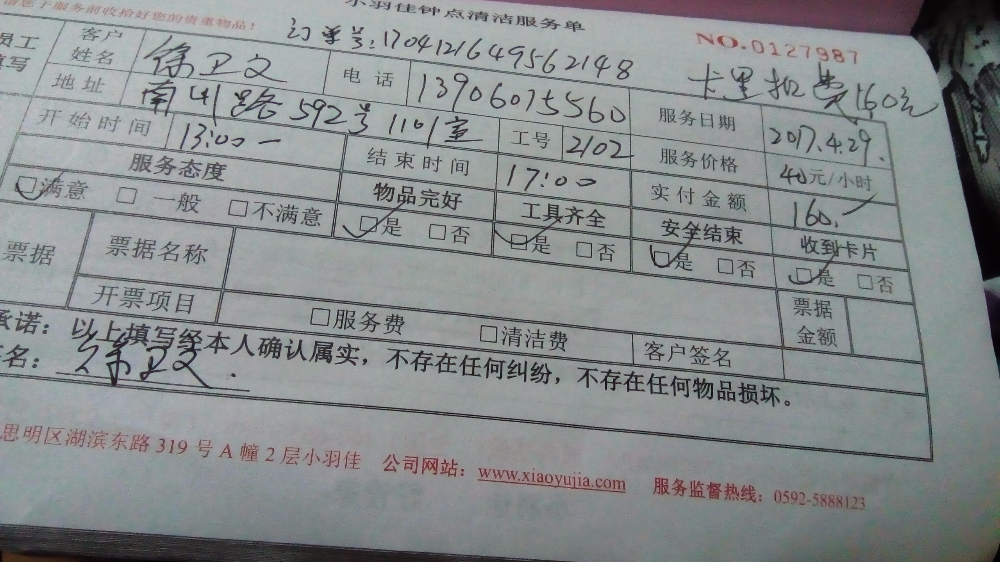 请您于服务前收拾好您的贵重物品！
小羽佳钟点清洁服务单
订单号:1704121649562148
NO.0127987
卡里扣费160元
员工
填写
客户姓名 徐卫文 电话 13906075560 服务日期 2017.4.29.
地址 南川路592号1101室 工号 2102 服务价格 40元/小时
开始时间 13:00 结束时间 17:00 实付金额 160.
服务态度 物品完好 工具齐全 安全结束 收到卡片
□满意 □一般 □不满意 □是 □否 □是 □否 □是 □否 □是 □否
票据 票据名称 票据金额
开票项目 □服务费 □清洁费 客户签名
承诺：以上填写经本人确认属实，不存在任何纠纷，不存在任何物品损坏。
名：徐卫文.
思明区湖滨东路 319 号 A 幢 2 层小羽佳 公司网站：www.xiaoyujia.com 服务监督热线：0592-5888123